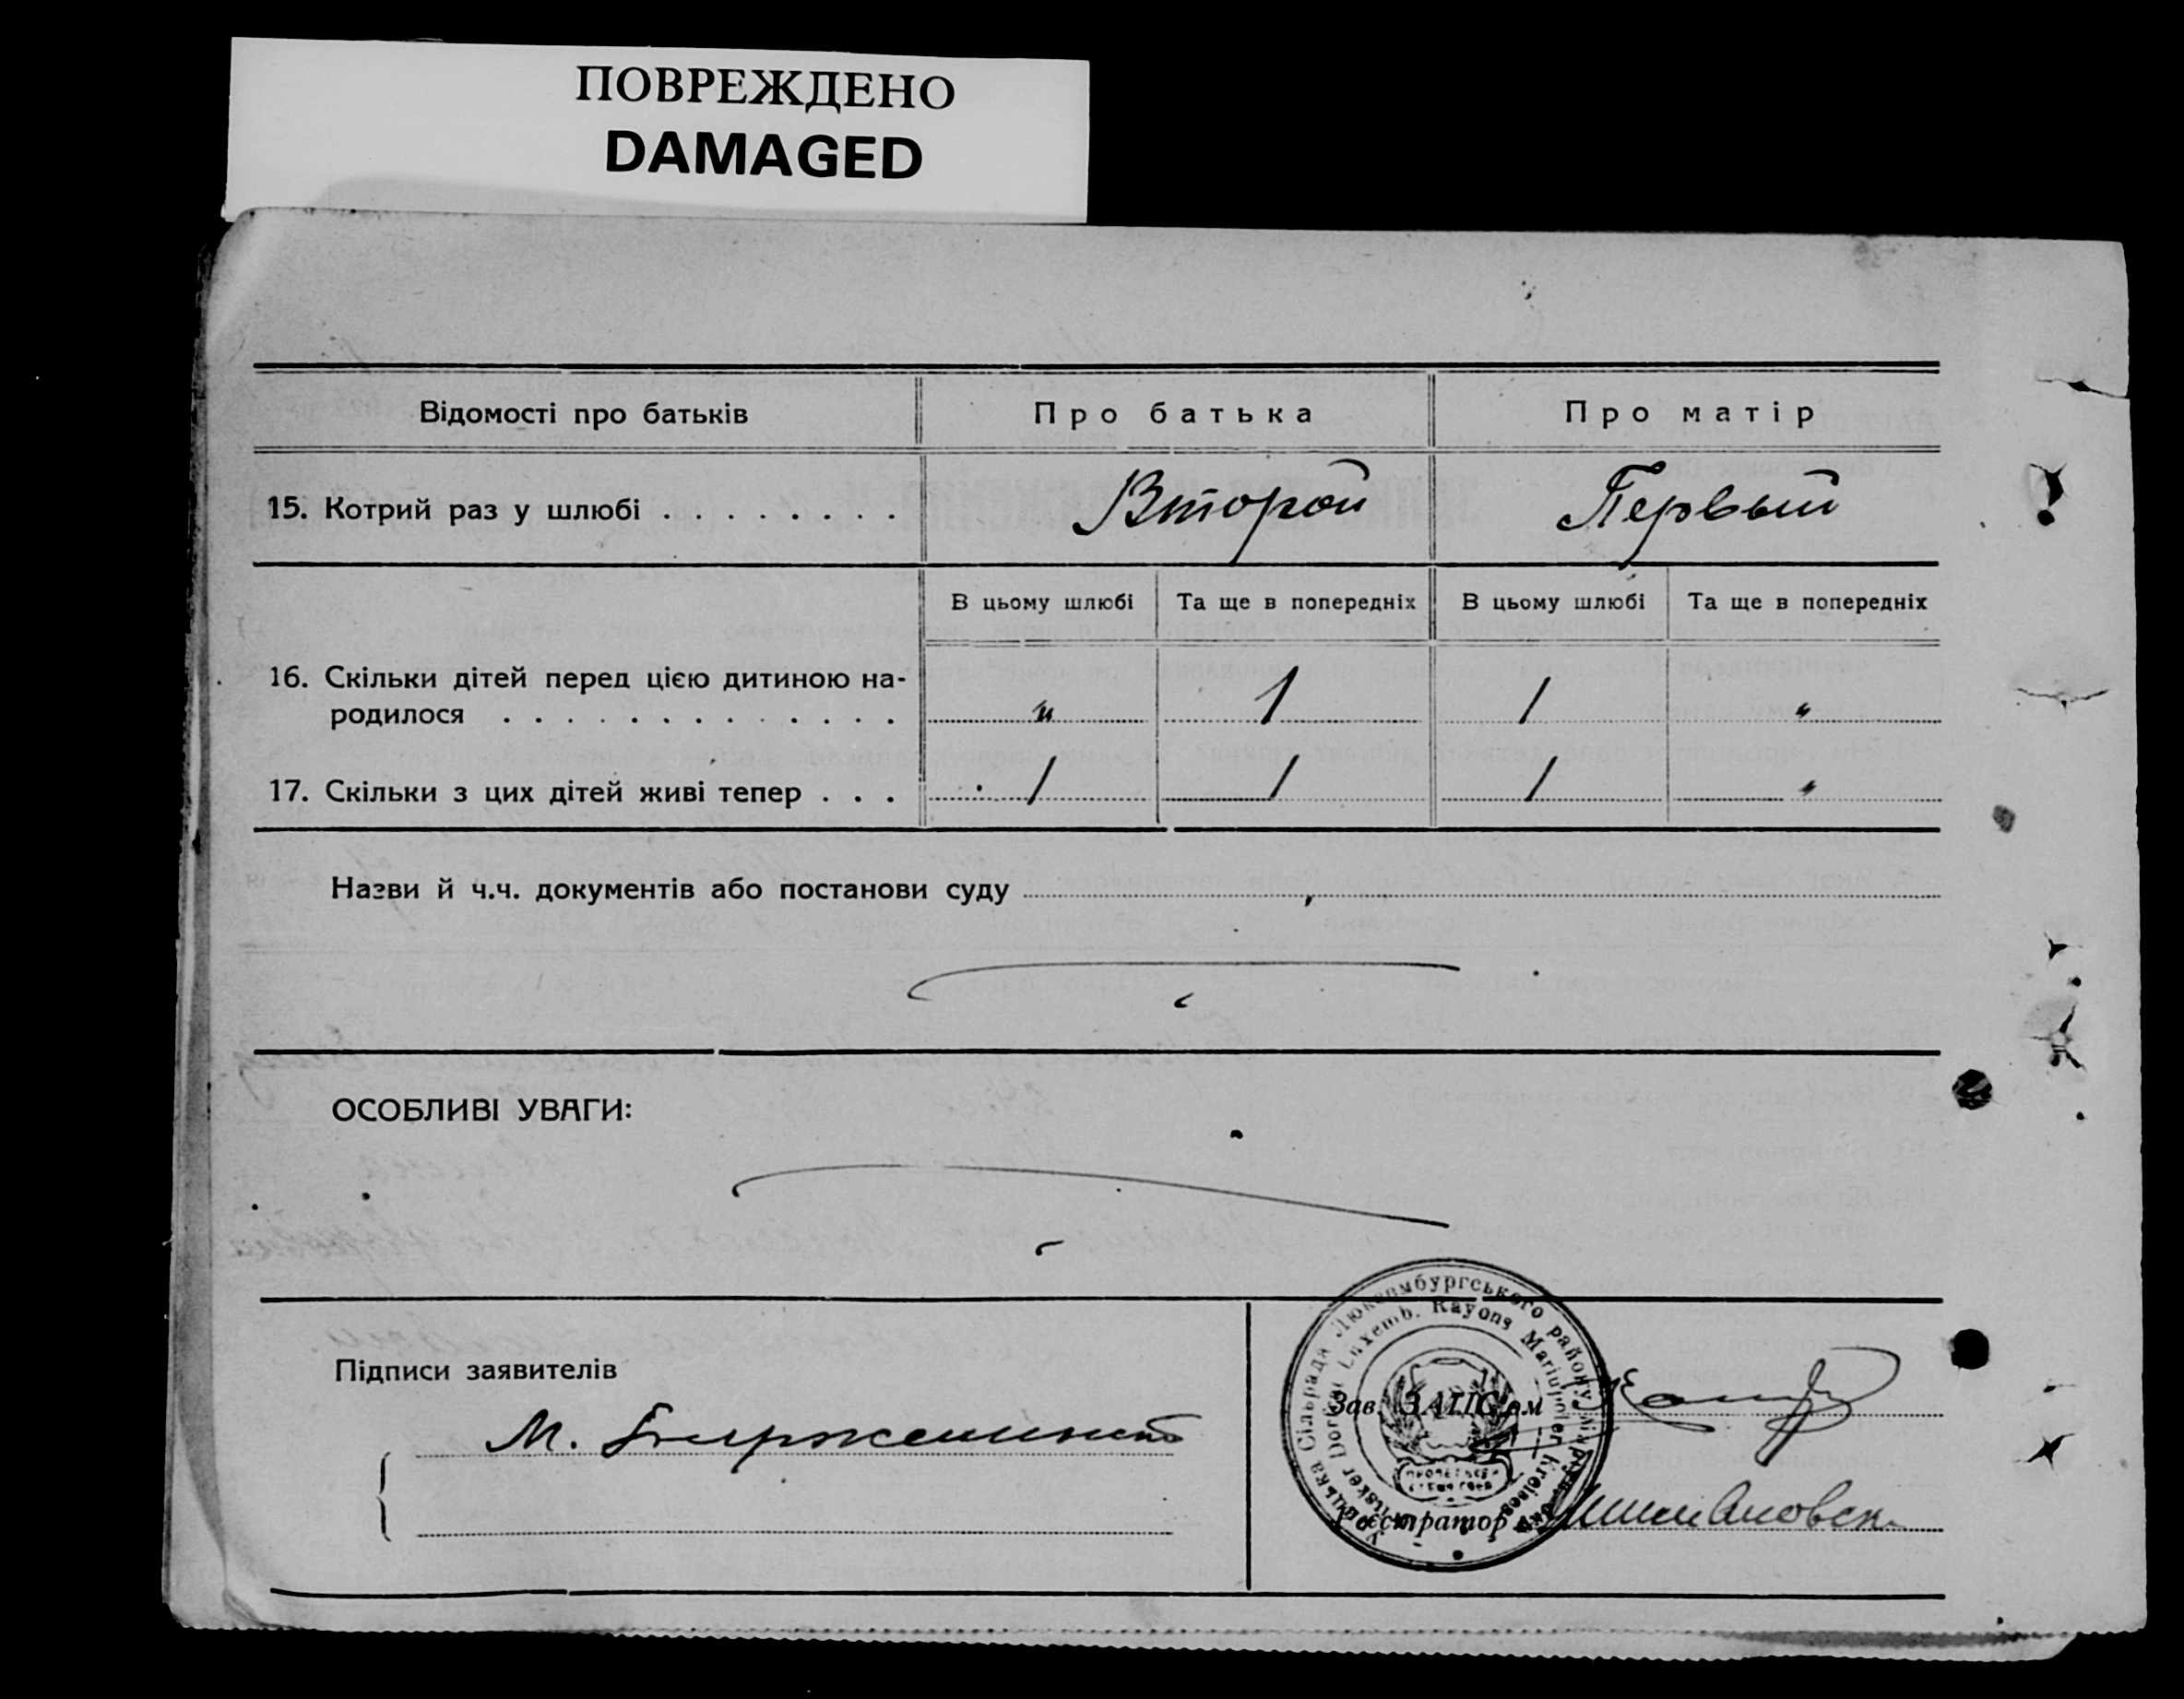 ПОВРЕЖДЕНО
DAMAGED
Відомості про батьків
Про батька
Про матір
15. Котрий раз у шлюбі . . . . . . . .
Второй
Первый
В цьому шлюбі
Та ще в попередніх
В цьому шлюбі
Та ще в попередніх
16. Скільки дітей перед цією дитиною на-
родилося . . . . . . . . . . . . .
"
1
1
"
17. Скільки з цих дітей живі тепер . . .
1
1
1
"
Назви й ч.ч. документів або постанови суду
ОСОБЛИВІ УВАГИ:
Підписи заявителів
М.
Зав. ЗАГС'ом
Реєстратор
Сільрада Люксембургського району
Luxemb. Rayons Mariupoler Kreises